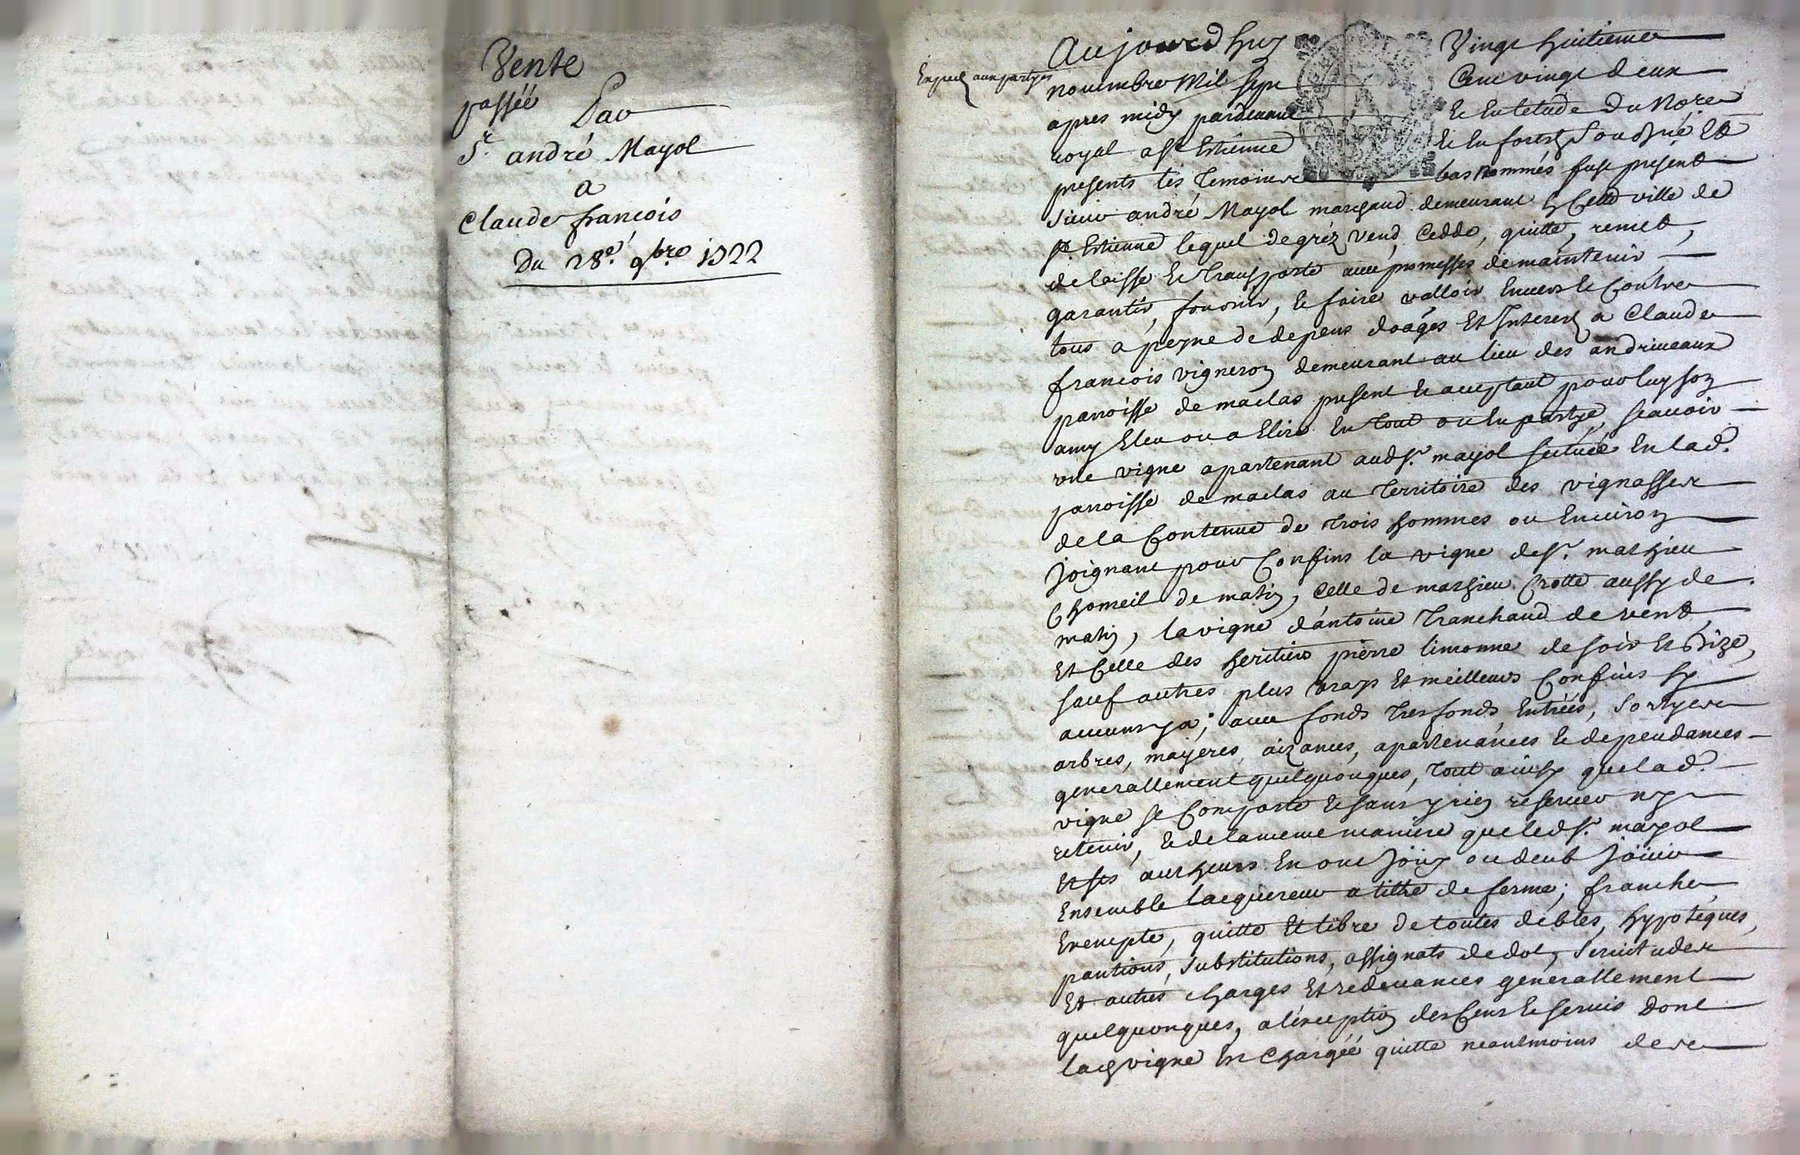 Vente
passée
Par
Sr. andré Mayol
a
Claude francois
Du 28e. 9bre 1722
Expedié aux partyes
Aujourdhuy Vingt huitieme
novembre Mil sept Cent vingt deux
apres midy pardevant Le
royal a St Estienne
presents les Temoins bas nommés fust présent
Sieur andré Mayol marchand demeurant En Cette ville de
St. Estienne lequel de gréz vend, Cedde, quitte, remet,
delaisse Et transporte avec promesses de maintenir
garantir, fournir, Et faire valloir Envers Et Contre
tous a peyne de depens doages Et Interetz a Claude
francois vigneron demeurant au lieu des andriveaux
parroisse de maclas present Et acceptant pour luy son
amy Eleu ou a Elire En tout ou En partye, scavoir
une vigne apartenant audt Sr. mayol scituée En lad.
parroisse de maclas au Territoire des vignasses
de la Contenue de trois hommes ou Environ
Joignant pour Confins la vigne de Sr. mathieu
Chomeil de matin, Celle de mathieu Crotte aussy de
matin, la vigne d'antoine Tranchand de vent
Et Celle des heritiers pierre limonne de soir Et bize,
sauf autres plus vrays Et meilleurs Confins sy
aucuns y a; avec fonds tresfonds, Entrées, Sortyes
arbres, mayeres, aizances, apartenances Et dependances
generallement quelquonques, tout ainsy que lad.
vigne se Comporte Et sans y rien reserver ny
retenir, Et de la meme maniere que led Sr. mayol
Et ses autheurs En ont Jouy ou deub Jouir
Ensemble lacquereur a tittre de ferme; franche
Exempte, quitte Et libre de toutes debtes, hypoteques,
pantions, substitutions, assignats de dot, Servitudes
Et autres charges Et redevances generallement
quelquonques, a lexception des Cens Et servis Dont
lad vigne Est Chargée quitte neantmoins de